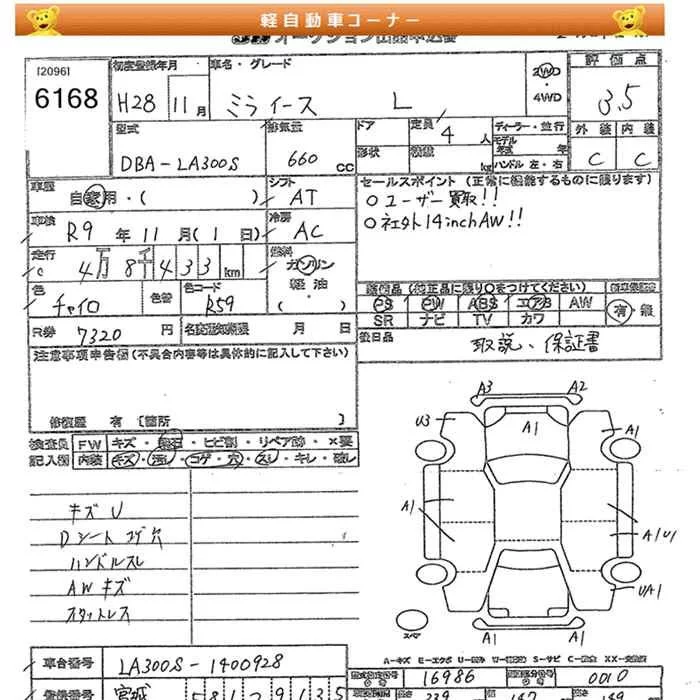 軽自動車コーナー
[2096]
6168
初度登録年月
H28 11月
車名・グレード
ミライース L
2WD
・
4WD
評価点
3.5
外装 内装
C C
型式
DBA-LA300S
排気量
660 CC
ドア
定員
4 人
形状
積載
kg
ディーラー・並行
モデル
年式 年
ハンドル 左・右
車歴
自家用・( )
シフト
AT
セールスポイント (正常に機能するものに限ります)
○ユーザー買取!!
○社外14inchAW!!
車検
R9年11月(1日)
冷房
AC
走行
4万8千433km
燃料
ガソリン
軽油
( )
色
チャイロ
色替
色コード
R59
装備品 (純正品に限り○をつけてください)
PS PW ABS エアB AW
SR ナビ TV カワ
有・無
R券 7320円
名変期限 月 日
後日品
取説、保証書
注意事項申告欄(不具合内容等は具体的に記入して下さい)
修復歴 有 [箇所 ]
検査員
記入欄
FW キズ・飛石・ヒビ割・リペア跡・×要
内装 キズ・汚レ・コゲ・穴・スレ・キレ・破レ
キズU
Dシートコゲ穴
ハンドルスレ
AWキズ
スタットレス
A3 A2
U3 A1 A1
A1 A1U1
UA1
A1 A1
スペア
A-キズ E-エクボ
車台番号
LA300S-1400928
型式指定番号
16986
類別区分番号
0010
登録番号
宮城 581